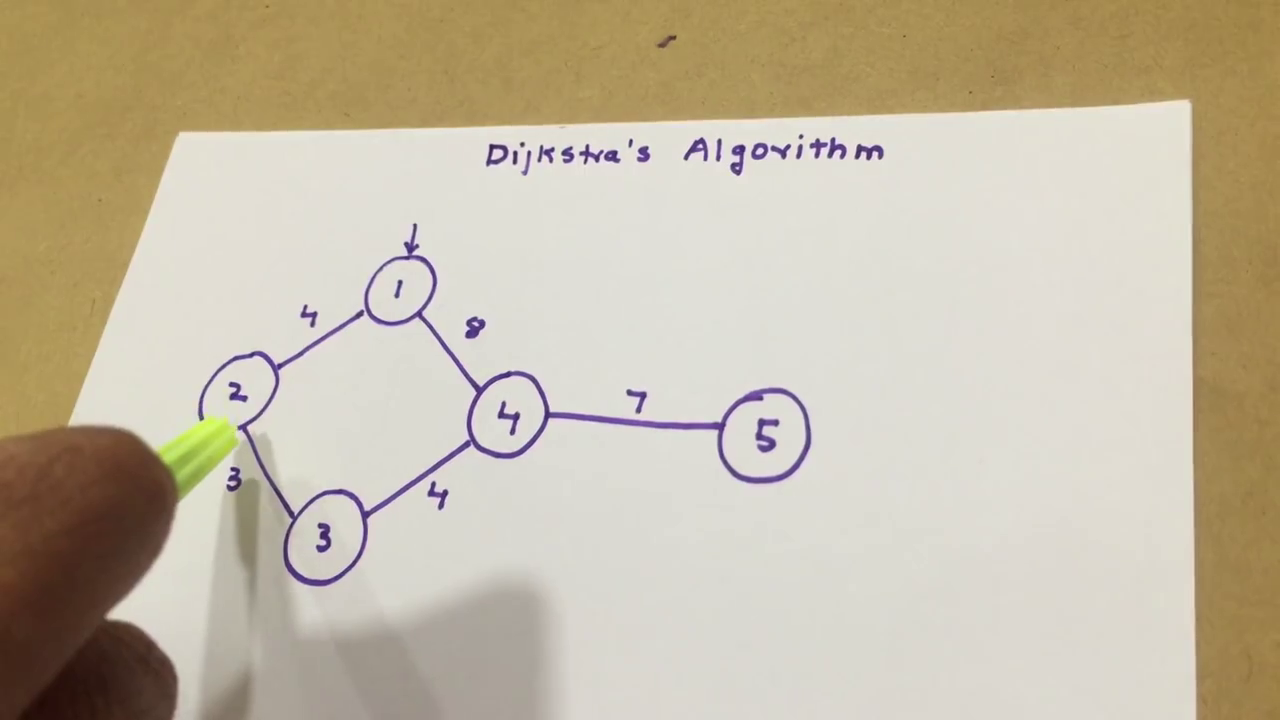 Dijkstra's Algorithm
1
4
8
2
7
4
5
3
4
3